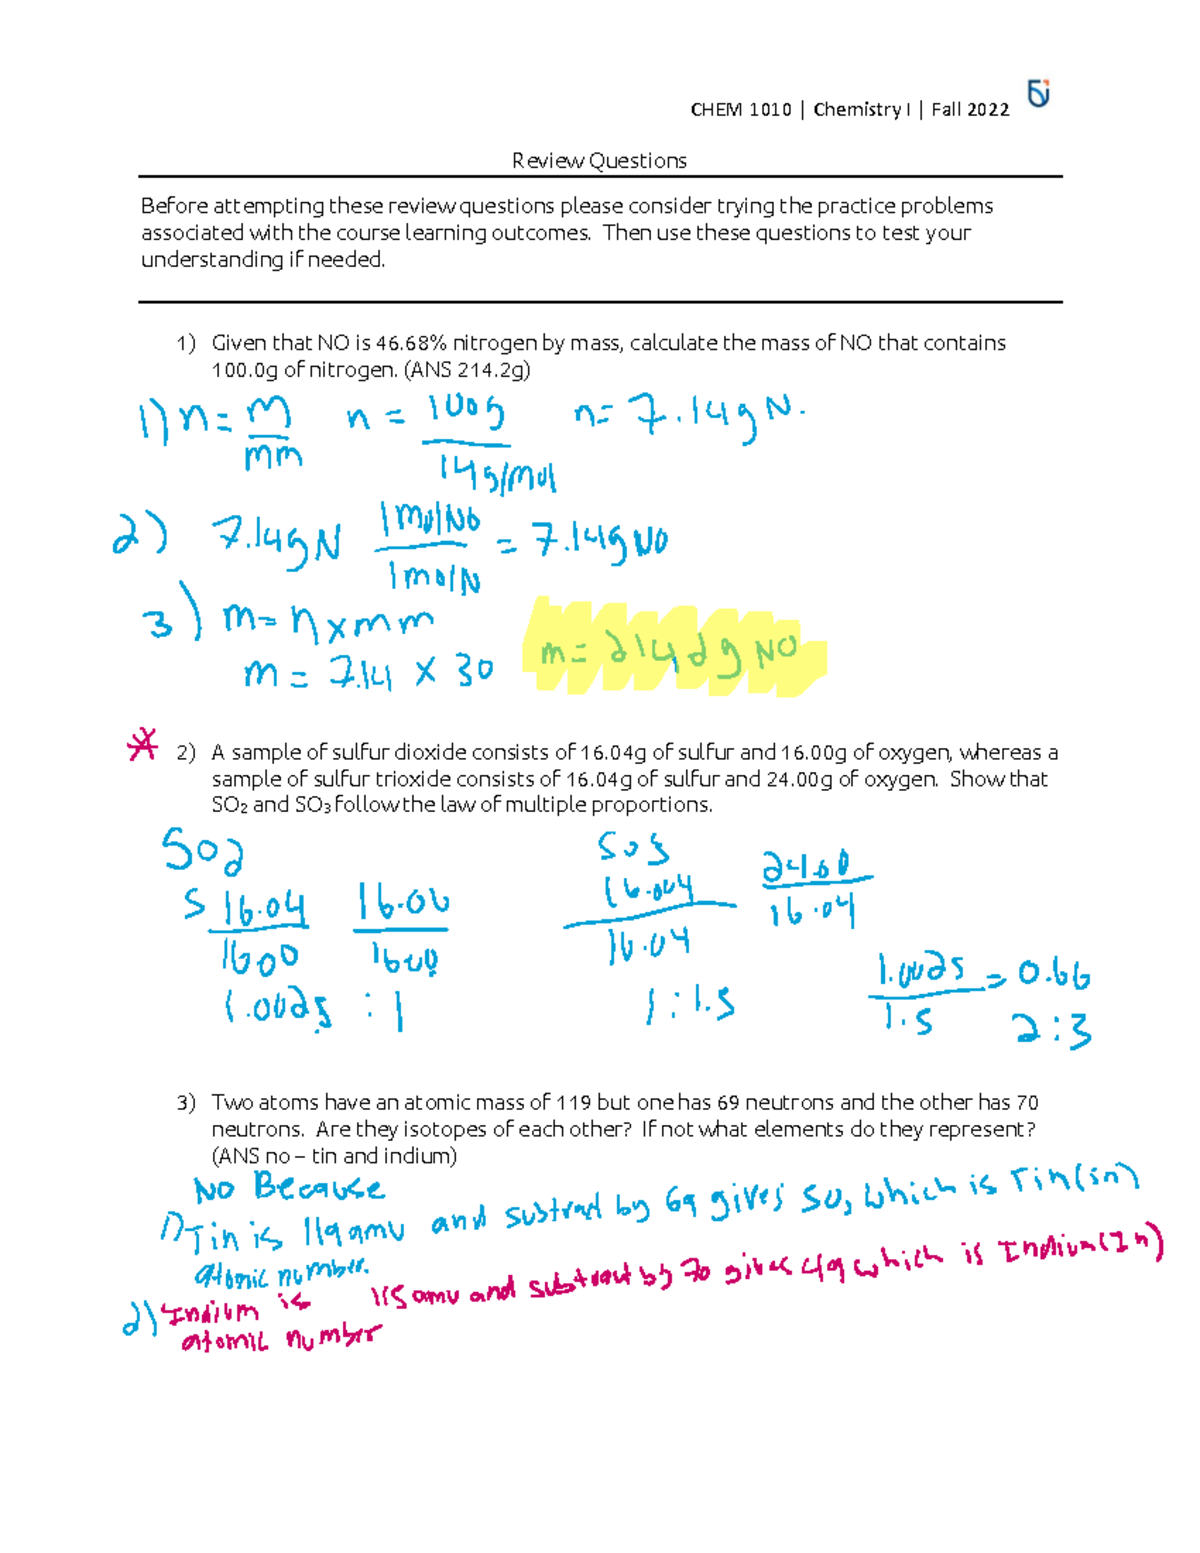 CHEM 1010 | Chemistry I | Fall 2022
Review Questions
Before attempting these review questions please consider trying the practice problems
associated with the course learning outcomes. Then use these questions to test your
understanding if needed.
1) Given that NO is 46.68% nitrogen by mass, calculate the mass of NO that contains
100.0g of nitrogen. (ANS 214.2g)
1) n = m/mm n = 100g/14g/mol n= 7.14g N.
2) 7.14g N 1 mol NO/1 mol N = 7.14g NO
3) m= n x mm
m = 7.14 x 30 m= 214,2g NO
2) A sample of sulfur dioxide consists of 16.04g of sulfur and 16.00g of oxygen, whereas a
sample of sulfur trioxide consists of 16.04g of sulfur and 24.00g of oxygen. Show that
SO2 and SO3 follow the law of multiple proportions.
SO2 SO3
S 16.04/1600 16.00/1600 16.004/16.04 24.00/16.04
1.0025 : 1 1 : 1.5 1.0025/1.5 = 0.66
2:3
3) Two atoms have an atomic mass of 119 but one has 69 neutrons and the other has 70
neutrons. Are they isotopes of each other? If not what elements do they represent?
(ANS no – tin and indium)
No Because
1) Tin is 119 amu and subtract by 69 gives 50, which is Tin(sn)
atomic number.
2) Indium is 115 amu and subtract by 70 gives 49 which is Indium(In)
atomic number